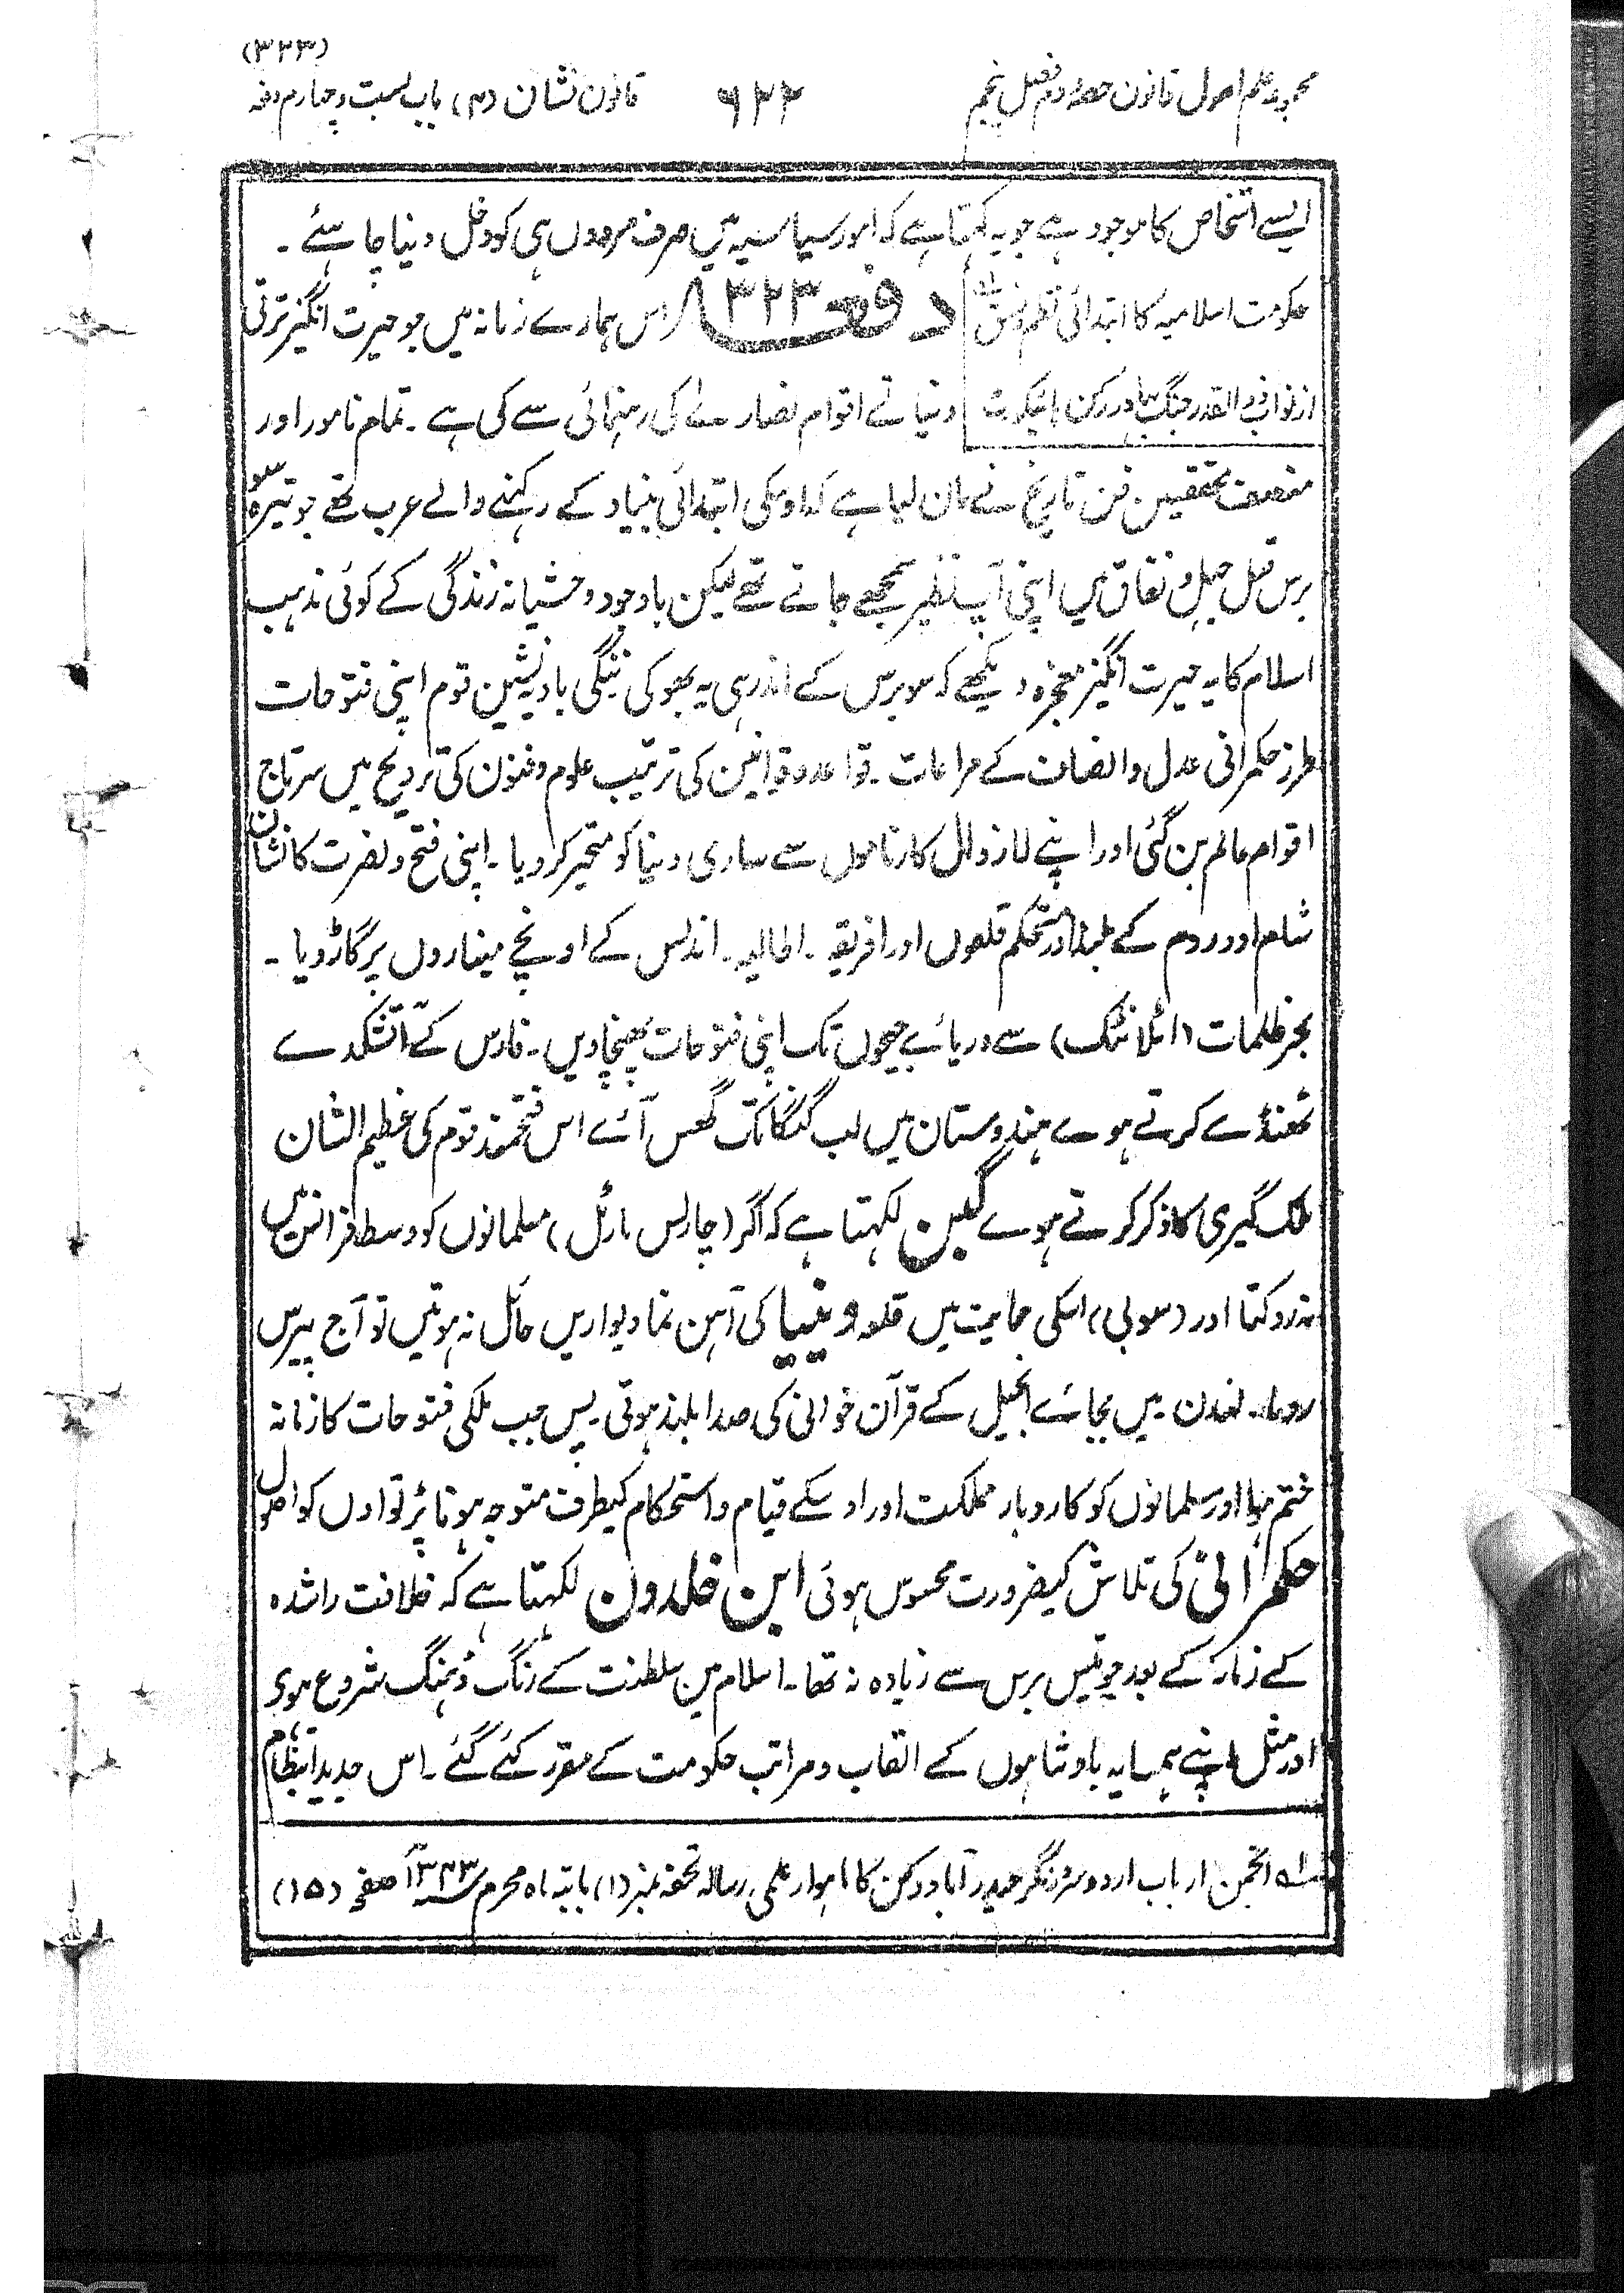 (۳۲۳)
مجموعہ علم اصول قانون حصۂ دوم فصل پنجم ۶۲۲ قانون نشان (۳) باب بست و چہارم دفعہ
ایسے اشخاص کا موجود ہے جو یہ کہتا ہے کہ امور سیاسیہ میں صرف مردوں ہی کو دخل دینا چاہئے ۔
حکومت اسلامیہ کا ابتدائی نظم و نسق
از نواب ذوالقدر جنگ بہادر رکن ہائیکورٹ
دفعہ ۳۲۳ اس ہمارے زمانہ میں جو حیرت انگیز ترقی
دنیا نے اقوام نصارےٰ کی رہنمائی سے کی ہے ۔ تمام نامور اور
منصف محققین فن تاریخ نے مان لیا ہے کہ اوسکی ابتدائی بنیاد کے رکہنے والے عرب تھے جو تیرہ سو
برس قبل جہل و نفاق میں اپنی آپ نظیر سمجھے جاتے تھے لیکن باوجود وحشیانہ زندگی کے کوئی مذہب
اسلام کا یہ حیرت انگیز معجزہ دیکھے کہ سو برس کے اندر ہی یہ بھوکی ننگی بادیہ نشین قوم اپنی فتوحات
طرز حکمرانی عدل و انصاف کے مراعات ۔ قواعد و قوانین کی ترتیب علوم و فنون کی ترویج میں سرتاج
اقوام عالم بن گئی اور اپنے لازوال کارناموں سے ساری دنیا کو متحیر کر دیا ۔ اپنی فتح و نصرت کا نشان
شام اور روم کے بلند اور مستحکم قلعوں اور افریقہ ۔ اطالیہ ۔ اندلس کے اونچے میناروں پر گاڑ دیا ۔
بحر ظلمات (اٹلانٹک) سے دریائے جیحوں تک اپنی فتوحات پھنچا دیں ۔ فارس کے آتشکدے
ٹھنڈے کرتے ہوے ہندوستان میں لب گنگا تک گھس آئے اس فتحمند قوم کی عظیم الشان
ملک گیری کا ذکر کرتے ہوے گبن لکہتا ہے کہ اگر (چارلس مارٹل) مسلمانوں کو وسط فرانس میں
نہ روکتا اور (سوبی) اسکی حمایت میں قلعہ وینیا کی آہن نما دیواریں حائل نہ ہوتیں تو آج پیرس
روما ۔ لندن ۔ میں بجائے انجیل کے قرآن خوانی کی صدا بلند ہوتی ۔ پس جب ملکی فتوحات کا زمانہ
ختم ہوا اور مسلمانوں کو کاروبار مملکت اور اوسکے قیام و استحکام کیطرف متوجہ ہونا پڑا تو اون کو اصول
حکمرانی کی تلاش کیضرورت محسوس ہوئی ابن خلدون لکہتا ہے کہ خلافت راشدہ
کے زمانہ کے بعد جو تیس برس سے زیادہ نہ تھا ۔ اسلام میں سلطنت کے رنگ ڈہنگ شروع ہوے
اور مثل اپنے ہمسایہ بادشاہوں کے القاب و مراتب حکومت کے مقرر کئے گئے ۔ اس جدید انتظام
انجمن ارباب اردو حیدرآباد دکن کا ماہوار علمی رسالہ تحفہ نمبر (۱) بابتہ ماہ محرم ۱۳۴۳ صفحہ (۱۵)